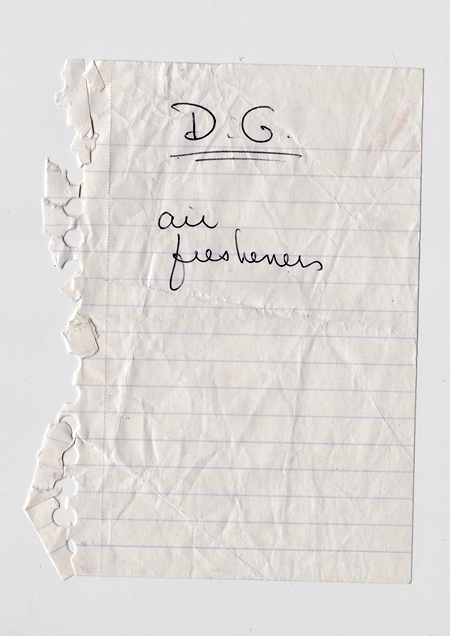 D.G.
air
fresheners